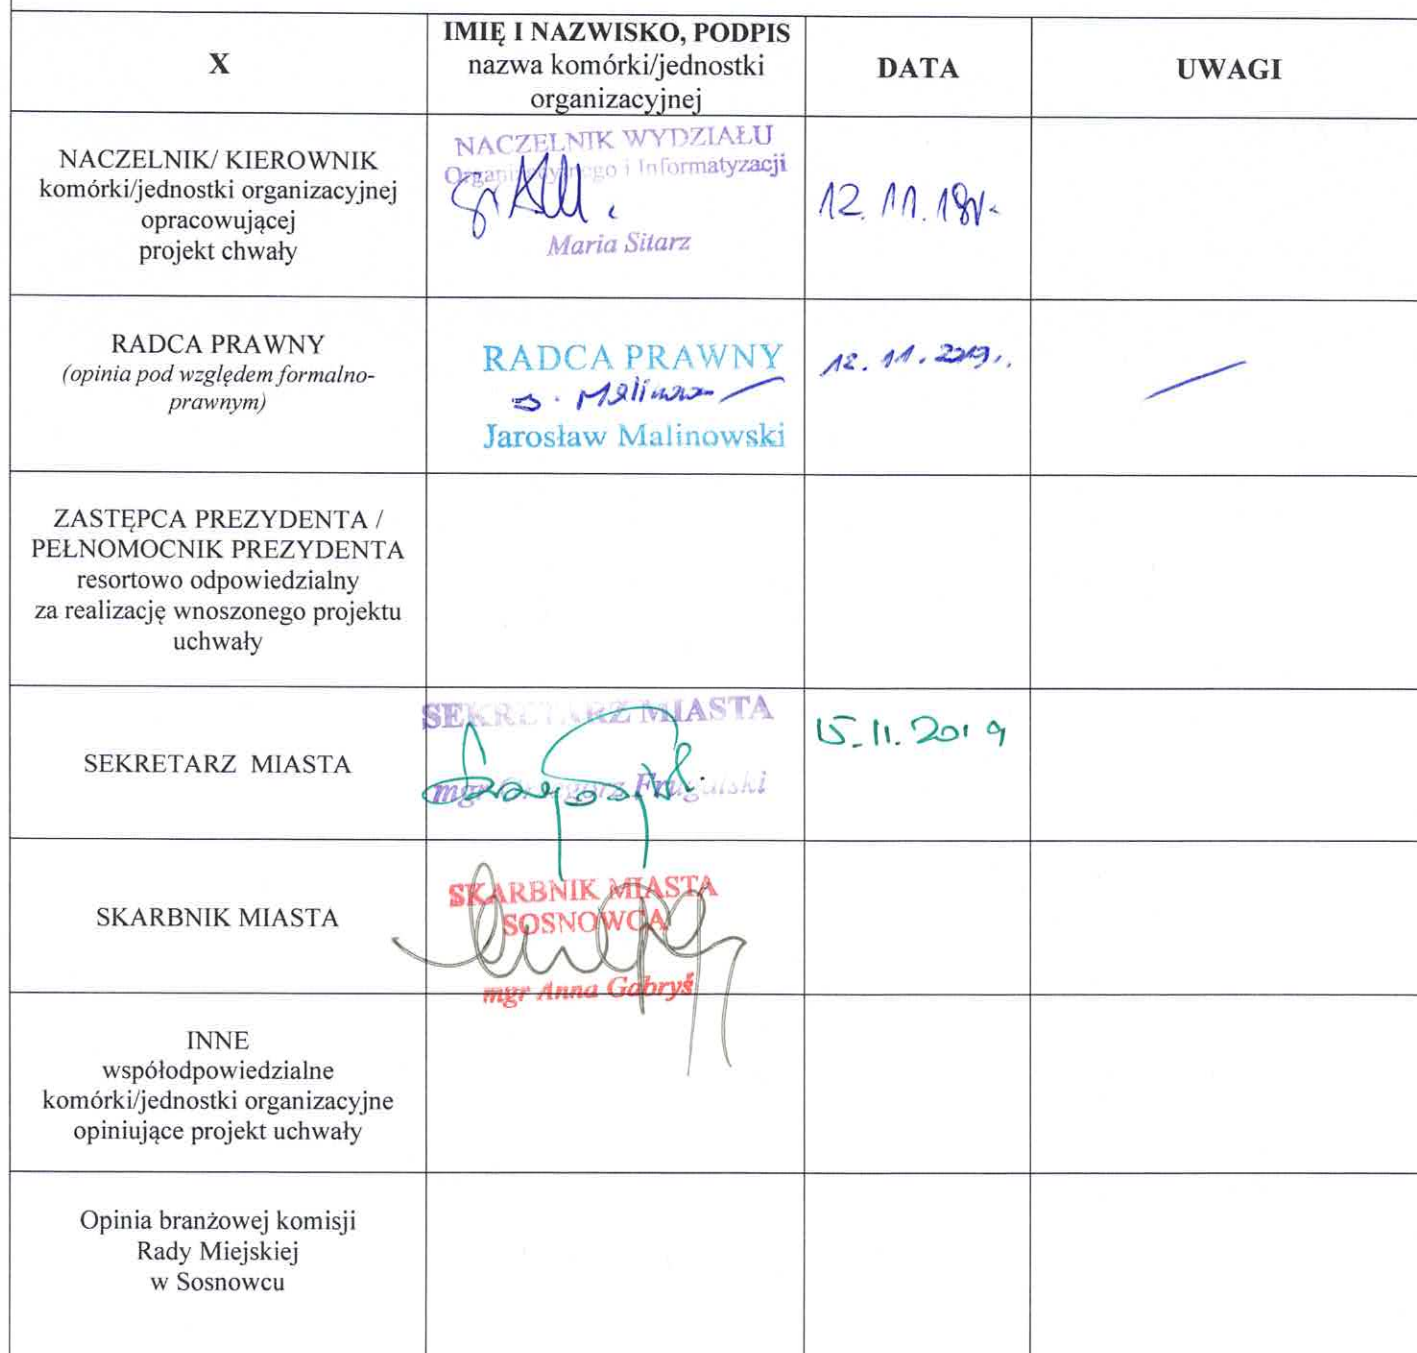 X
IMIĘ I NAZWISKO, PODPIS
nazwa komórki/jednostki
organizacyjnej
DATA
UWAGI
NACZELNIK/ KIEROWNIK
komórki/jednostki organizacyjnej
opracowującej
projekt chwały
NACZELNIK WYDZIAŁU
Organizacyjnego i Informatyzacji
Maria Sitarz
12.11.19r.
RADCA PRAWNY
(opinia pod względem formalno-
prawnym)
RADCA PRAWNY
J. Malinow
Jarosław Malinowski
12.11.2019.
ZASTĘPCA PREZYDENTA /
PEŁNOMOCNIK PREZYDENTA
resortowo odpowiedzialny
za realizację wnoszonego projektu
uchwały
SEKRETARZ MIASTA
SEKRETARZ MIASTA
mgr Grzegorz Frugalski
15.11.2019
SKARBNIK MIASTA
SKARBNIK MIASTA
SOSNOWCA
mgr Anna Gabryś
INNE
współodpowiedzialne
komórki/jednostki organizacyjne
opiniujące projekt uchwały
Opinia branżowej komisji
Rady Miejskiej
w Sosnowcu